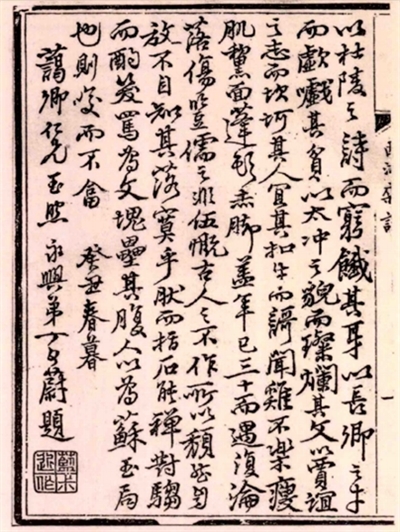 以杜陵之詩而窮餓其身以長卿之才
而歔嚱其貧以太冲之貌而璨斕其文以賈誼
之志而坎坷其人宜其扣牛而謌聞雞不樂瘦
肌黧面蓬髮赤脚蓋年已三十而遇復淪
落傷豎儒之非伍慨古人之不作所以頹然自
放不自知其落寞乎狀而指石能禪對騶
而酌笑罵為文塊壘其腹人以為蘇玉局
也則而不 癸丑春暮
藹卿仁兄玉照 永興弟丁蔚題